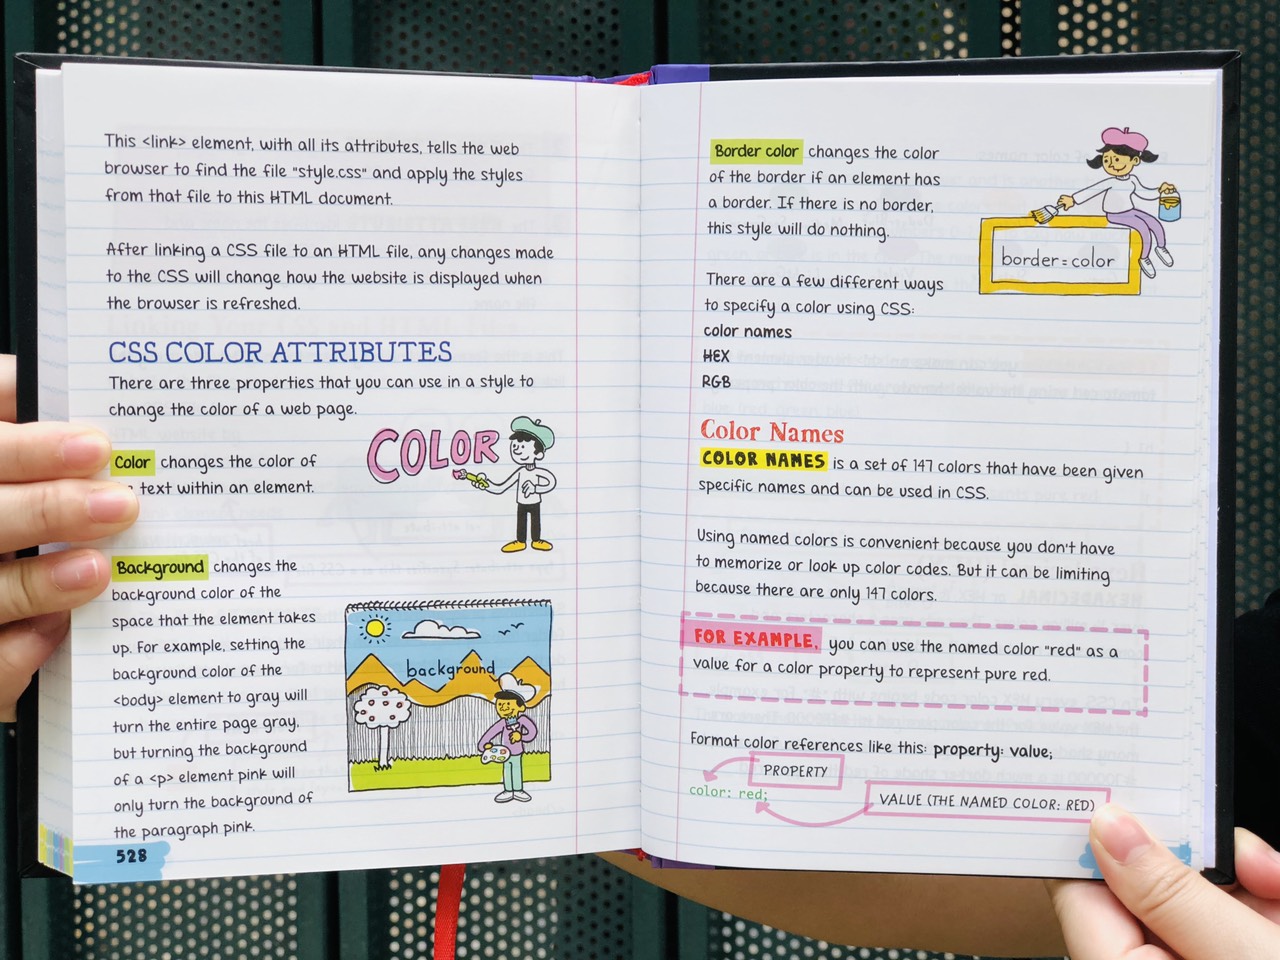 This <link> element, with all its attributes, tells the web
browser to find the file "style.css" and apply the styles
from that file to this HTML document.
After linking a CSS file to an HTML file, any changes made
to the CSS will change how the website is displayed when
the browser is refreshed.
CSS COLOR ATTRIBUTES
There are three properties that you can use in a style to
change the color of a web page.
Color changes the color of
text within an element.
COLOR
Background changes the
background color of the
space that the element takes
up. For example, setting the
background color of the
<body> element to gray will
turn the entire page gray,
but turning the background
of a <p> element pink will
only turn the background of
the paragraph pink.
background
528
Border color changes the color
of the border if an element has
a border. If there is no border,
this style will do nothing.
border=color
There are a few different ways
to specify a color using CSS:
color names
HEX
RGB
Color Names
COLOR NAMES is a set of 147 colors that have been given
specific names and can be used in CSS.
Using named colors is convenient because you don't have
to memorize or look up color codes. But it can be limiting
because there are only 147 colors.
FOR EXAMPLE, you can use the named color "red" as a
value for a color property to represent pure red.
Format color references like this: property: value;
PROPERTY
color: red;
VALUE (THE NAMED COLOR: RED)